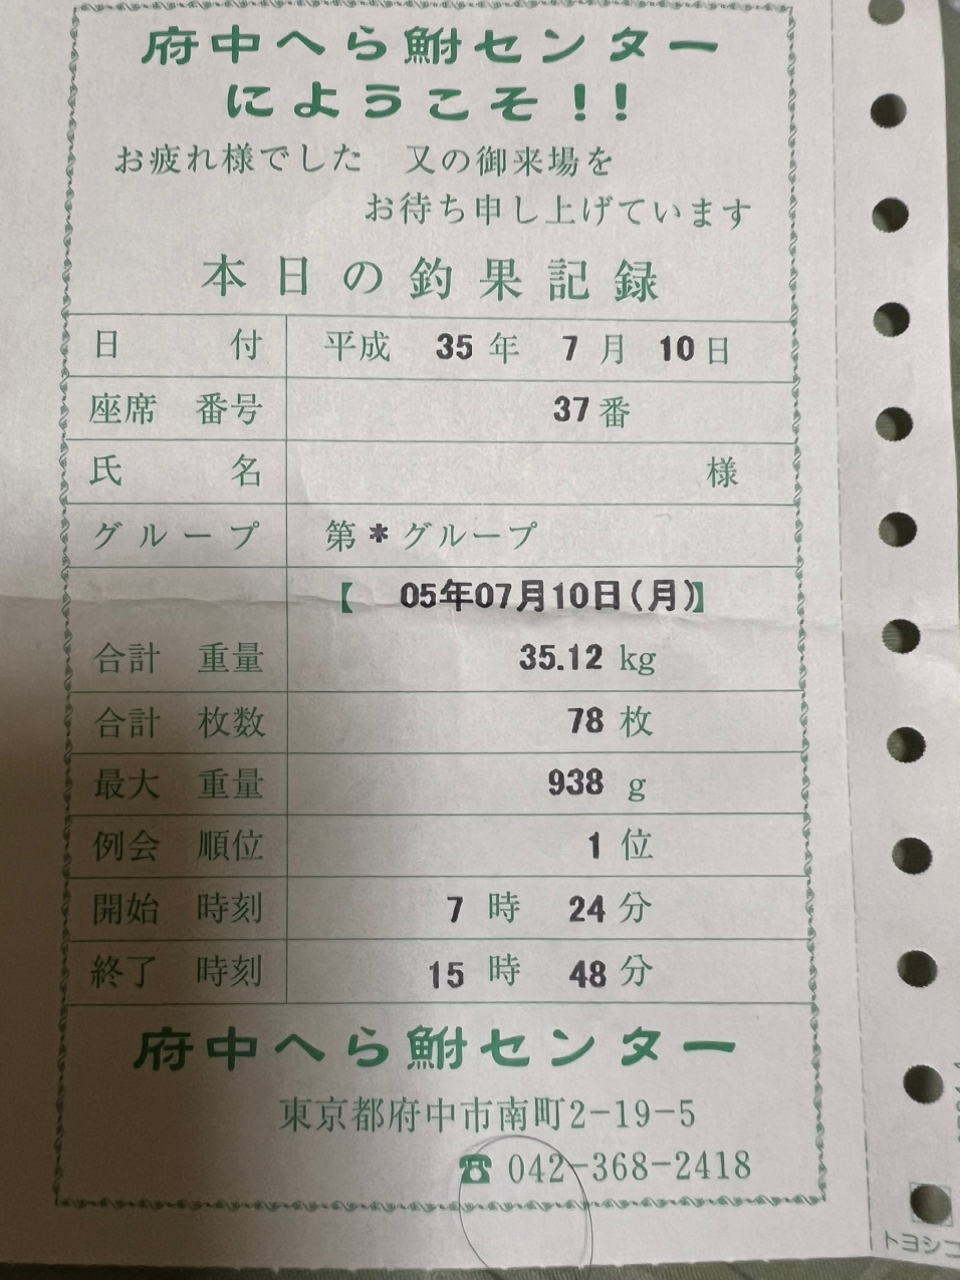 府中へら鮒センター
にようこそ!!
お疲れ様でした 又の御来場を
お待ち申し上げています
本日の釣果記録
日付 平成 35年 7月 10日
座席 番号 37番
氏名 様
グループ 第*グループ
【 05年07月10日(月)】
合計 重量 35.12 kg
合計 枚数 78 枚
最大 重量 938 g
例会 順位 1 位
開始 時刻 7 時 24 分
終了 時刻 15 時 48 分
府中へら鮒センター
東京都府中市南町2-19-5
☎ 042-368-2418
トヨシコ